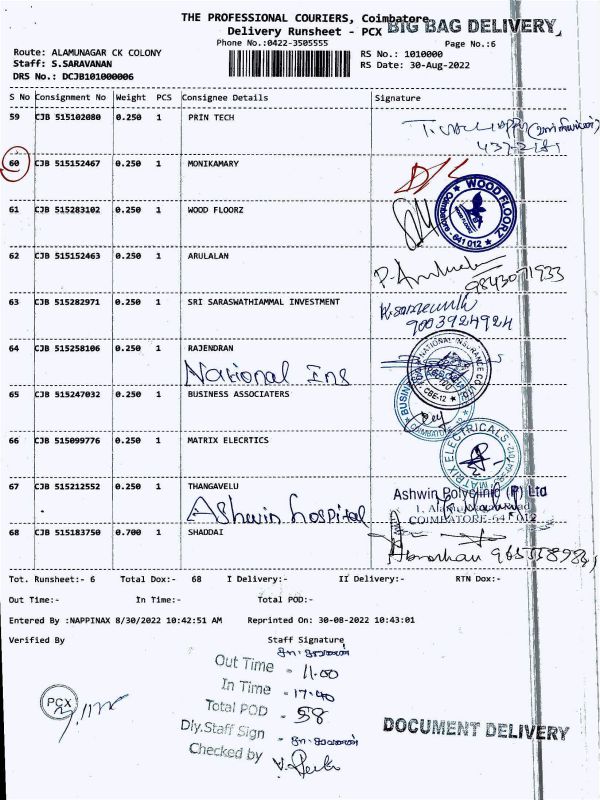 THE PROFESSIONAL COURIERS, Coimbatore
Delivery Runsheet - PCX
BIG BAG DELIVERY
Phone No.:0422-3505555
Page No.:6
Route: ALAMUNAGAR CK COLONY
RS No.: 1010000
Staff: S.SARAVANAN
RS Date: 30-Aug-2022
DRS No.: DCJB101000006
S No Consignment No Weight PCS Consignee Details Signature
59 CJB 515102080 0.250 1 PRIN TECH
60 CJB 515152467 0.250 1 MONIKAMARY
D/L
61 CJB 515283102 0.250 1 WOOD FLOORZ
WOOD FLOORZ
Coimbatore - 641 012
62 CJB 515152463 0.250 1 ARULALAN
9843071933
63 CJB 515282971 0.250 1 SRI SARASWATHIAMMAL INVESTMENT
9003924924
64 CJB 515258106 0.250 1 RAJENDRAN
National Ins
NATIONAL INSURANCE CO. LTD.
CBE-12
65 CJB 515247032 0.250 1 BUSINESS ASSOCIATERS
66 CJB 515099776 0.250 1 MATRIX ELECRTICS
MATRIX ELECTRICALS
67 CJB 515212552 0.250 1 THANGAVELU
Ashwin hospital
Ashwin Polyclinic (P) Ltd
COIMBATORE-641 012
68 CJB 515183750 0.700 1 SHADDAI
Tot. Runsheet:- 6 Total Dox:- 68 I Delivery:- II Delivery:- RTN Dox:-
Out Time:- In Time:- Total POD:-
Entered By :NAPPINAX 8/30/2022 10:42:51 AM Reprinted On: 30-08-2022 10:43:01
Verified By Staff Signature
Out Time - 11.00
In Time - 17.40
Total POD - 58
Dly.Staff Sign -
Checked by
PCX
DOCUMENT DELIVERY